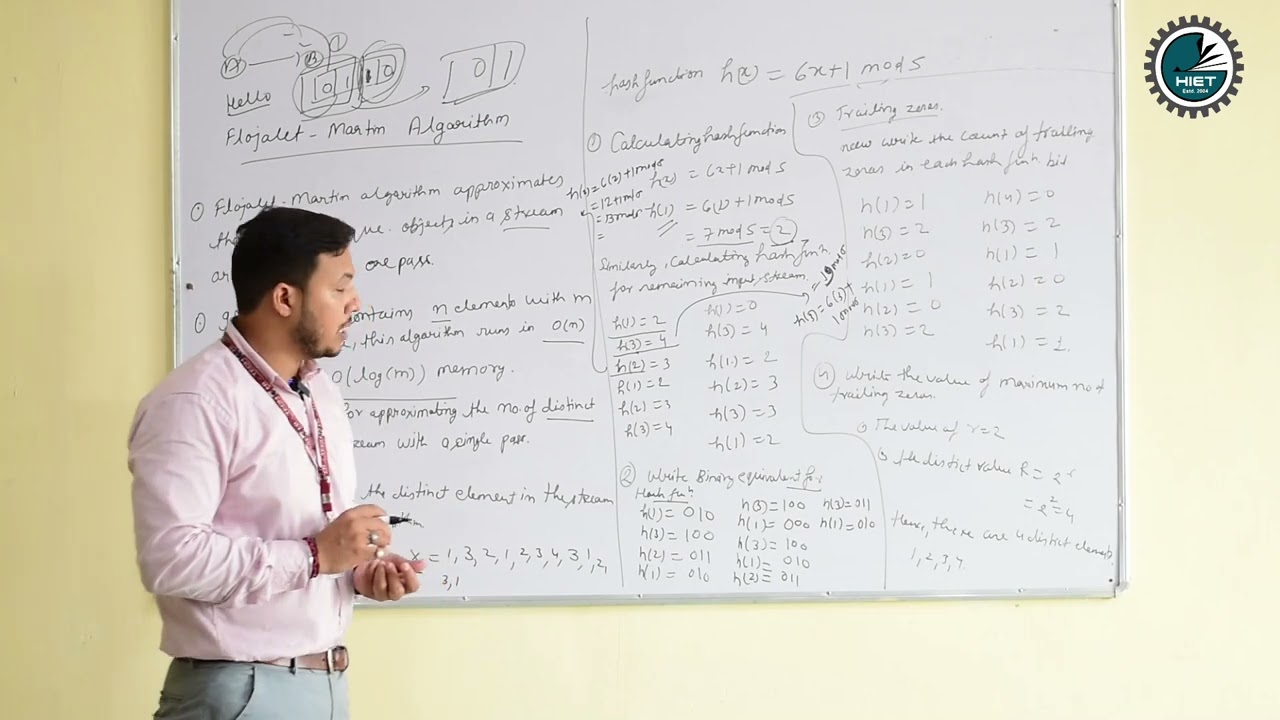 HIET
Estd. 2004
A
B
1
0 1 1 0
0 1 1
Hello
Flojalet-Martin Algorithm
① Flojalet-Martin algorithm approximates
objects in a stream
one pass.
contains n elements with m
this algorithm runs in O(n)
O(log(m)) memory.
for approximating the no. of distinct
with a single pass.
the distinct element in the stream
x = 1, 3, 2, 1, 2, 3, 4, 3, 1, 2,
3, 1
hash function h(x) = 6x+1 mod 5
① Calculating hash function
h(x) = 6x+1 mod 5
h(1) = 6(1)+1 mod 5
= 7 mod 5 = 2
= 12+1 mod 5
= 13 mod 5
=
Similarly, Calculating hash funⁿ.
for remaining input stream.
h(3)=6(3)+
1 mod 5
= 19 mod 5
h(1)=2
h(3)=4
h(2)=3
h(1)=2
h(2)=3
h(3)=4
h(4)=0
h(3)=4
h(1)=2
h(2)=3
h(3)=3
h(1)=2
② Write Binary equivalent for
Hash funⁿ
h(1)= 010
h(3)= 100
h(2)= 011
h(1)= 010
h(3)=100
h(1)=000
h(3)=100
h(1)=010
h(2)=011
h(3)=011
h(1)=010
③ Trailing zeros.
now write the count of trailing
zeros in each hash funⁿ. bit
h(1)=1
h(3)=2
h(2)=0
h(1)=1
h(2)=0
h(3)=2
h(4)=0
h(3)=2
h(1)=1
h(2)=0
h(3)=2
h(1)=1.
④ Write the value of maximum no of
trailing zeros.
The value of r=2
the distict value R = 2ʳ
= 2²=4
Hence, there are 4 distict elements
1, 2, 3, 4.